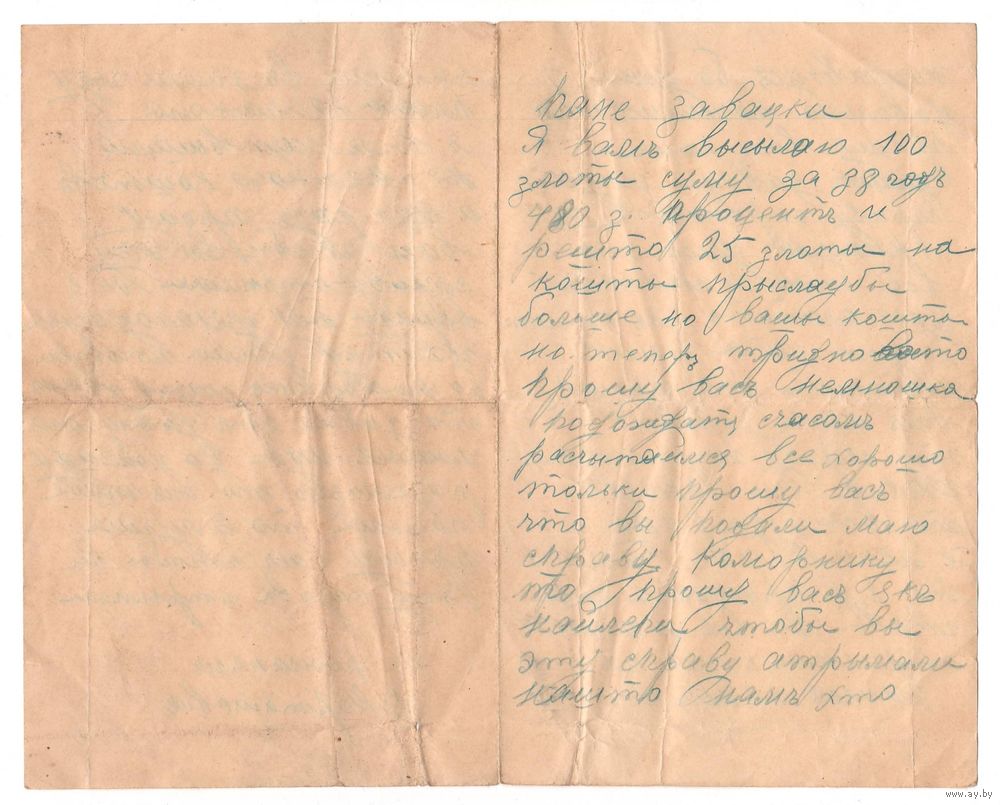 пане завацки
Я вамъ высылаю 100
злоты суму за 38 годъ
480 з. процентъ и
решто 25 злоты на
кошты прыслаубы
больше но вашы кошты
но теперъ трудно
прошу васъ немношка
подождать счасомъ
расчытаимся все хорошо
только прошу васъ
что вы подали маю
справу Коморнику
то прошу васъ якъ
найлепи чтобы вы
эту справу атрымали
нашто намъ хто
www.ay.by